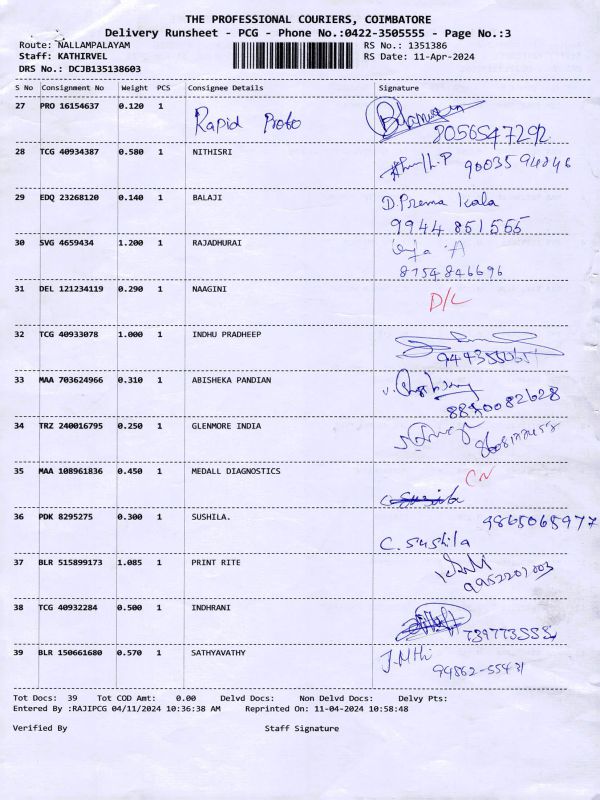 THE PROFESSIONAL COURIERS, COIMBATORE
Delivery Runsheet - PCG - Phone No.:0422-3505555 - Page No.:3
Route: NALLAMPALAYAM RS No.: 1351386
Staff: KATHIRVEL RS Date: 11-Apr-2024
DRS No.: DCJB135138603
S No Consignment No Weight PCS Consignee Details Signature
27 PRO 16154637 0.120 1 Rapid Proto
8056547292
28 TCG 40934387 0.580 1 NITHISRI
29 EDQ 23268120 0.140 1 BALAJI D.Prema kala
9944 851 555
30 SVG 4659434 1.200 1 RAJADHURAI
8754846696
31 DEL 121234119 0.290 1 NAAGINI D/L
32 TCG 40933078 1.000 1 INDHU PRADHEEP
33 MAA 703624966 0.310 1 ABISHEKA PANDIAN
34 TRZ 240016795 0.250 1 GLENMORE INDIA
35 MAA 108961836 0.450 1 MEDALL DIAGNOSTICS CN
36 PDK 8295275 0.300 1 SUSHILA. 9865065977
C. Sushila
37 BLR 515899173 1.085 1 PRINT RITE
38 TCG 40932284 0.500 1 INDHRANI
39 BLR 150661680 0.570 1 SATHYAVATHY
Tot Docs: 39 Tot COD Amt: 0.00 Delvd Docs: Non Delvd Docs: Delvy Pts:
Entered By :RAJIPCG 04/11/2024 10:36:38 AM Reprinted On: 11-04-2024 10:58:48
Verified By Staff Signature